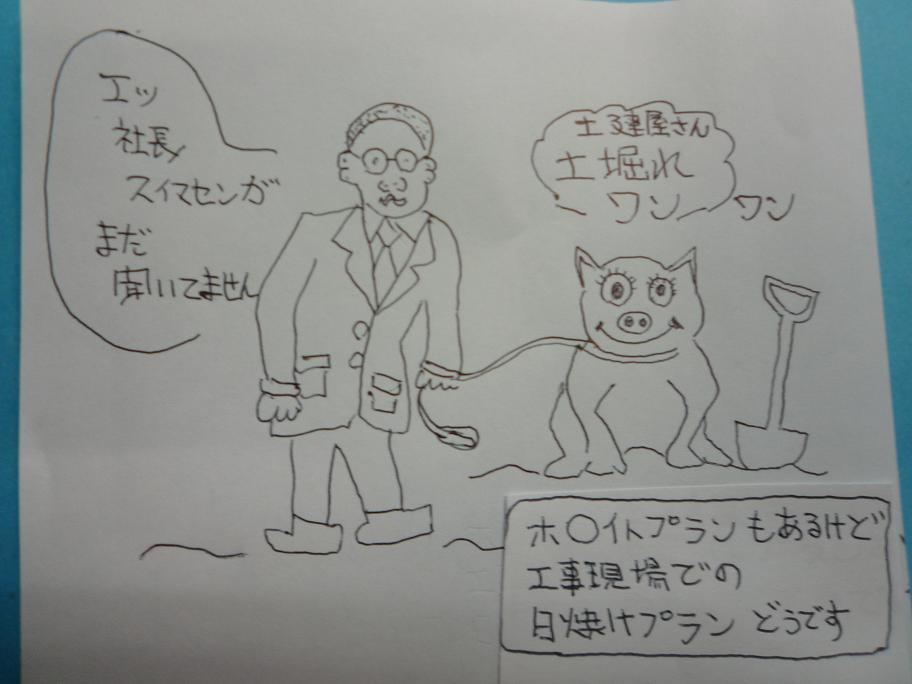 エッ
社長
スイマセンが
まだ
聞いてません
土建屋さん
土堀れ
ワン ワン
ホ〇イトプランもあるけど
工事現場での
日焼けプラン どうです